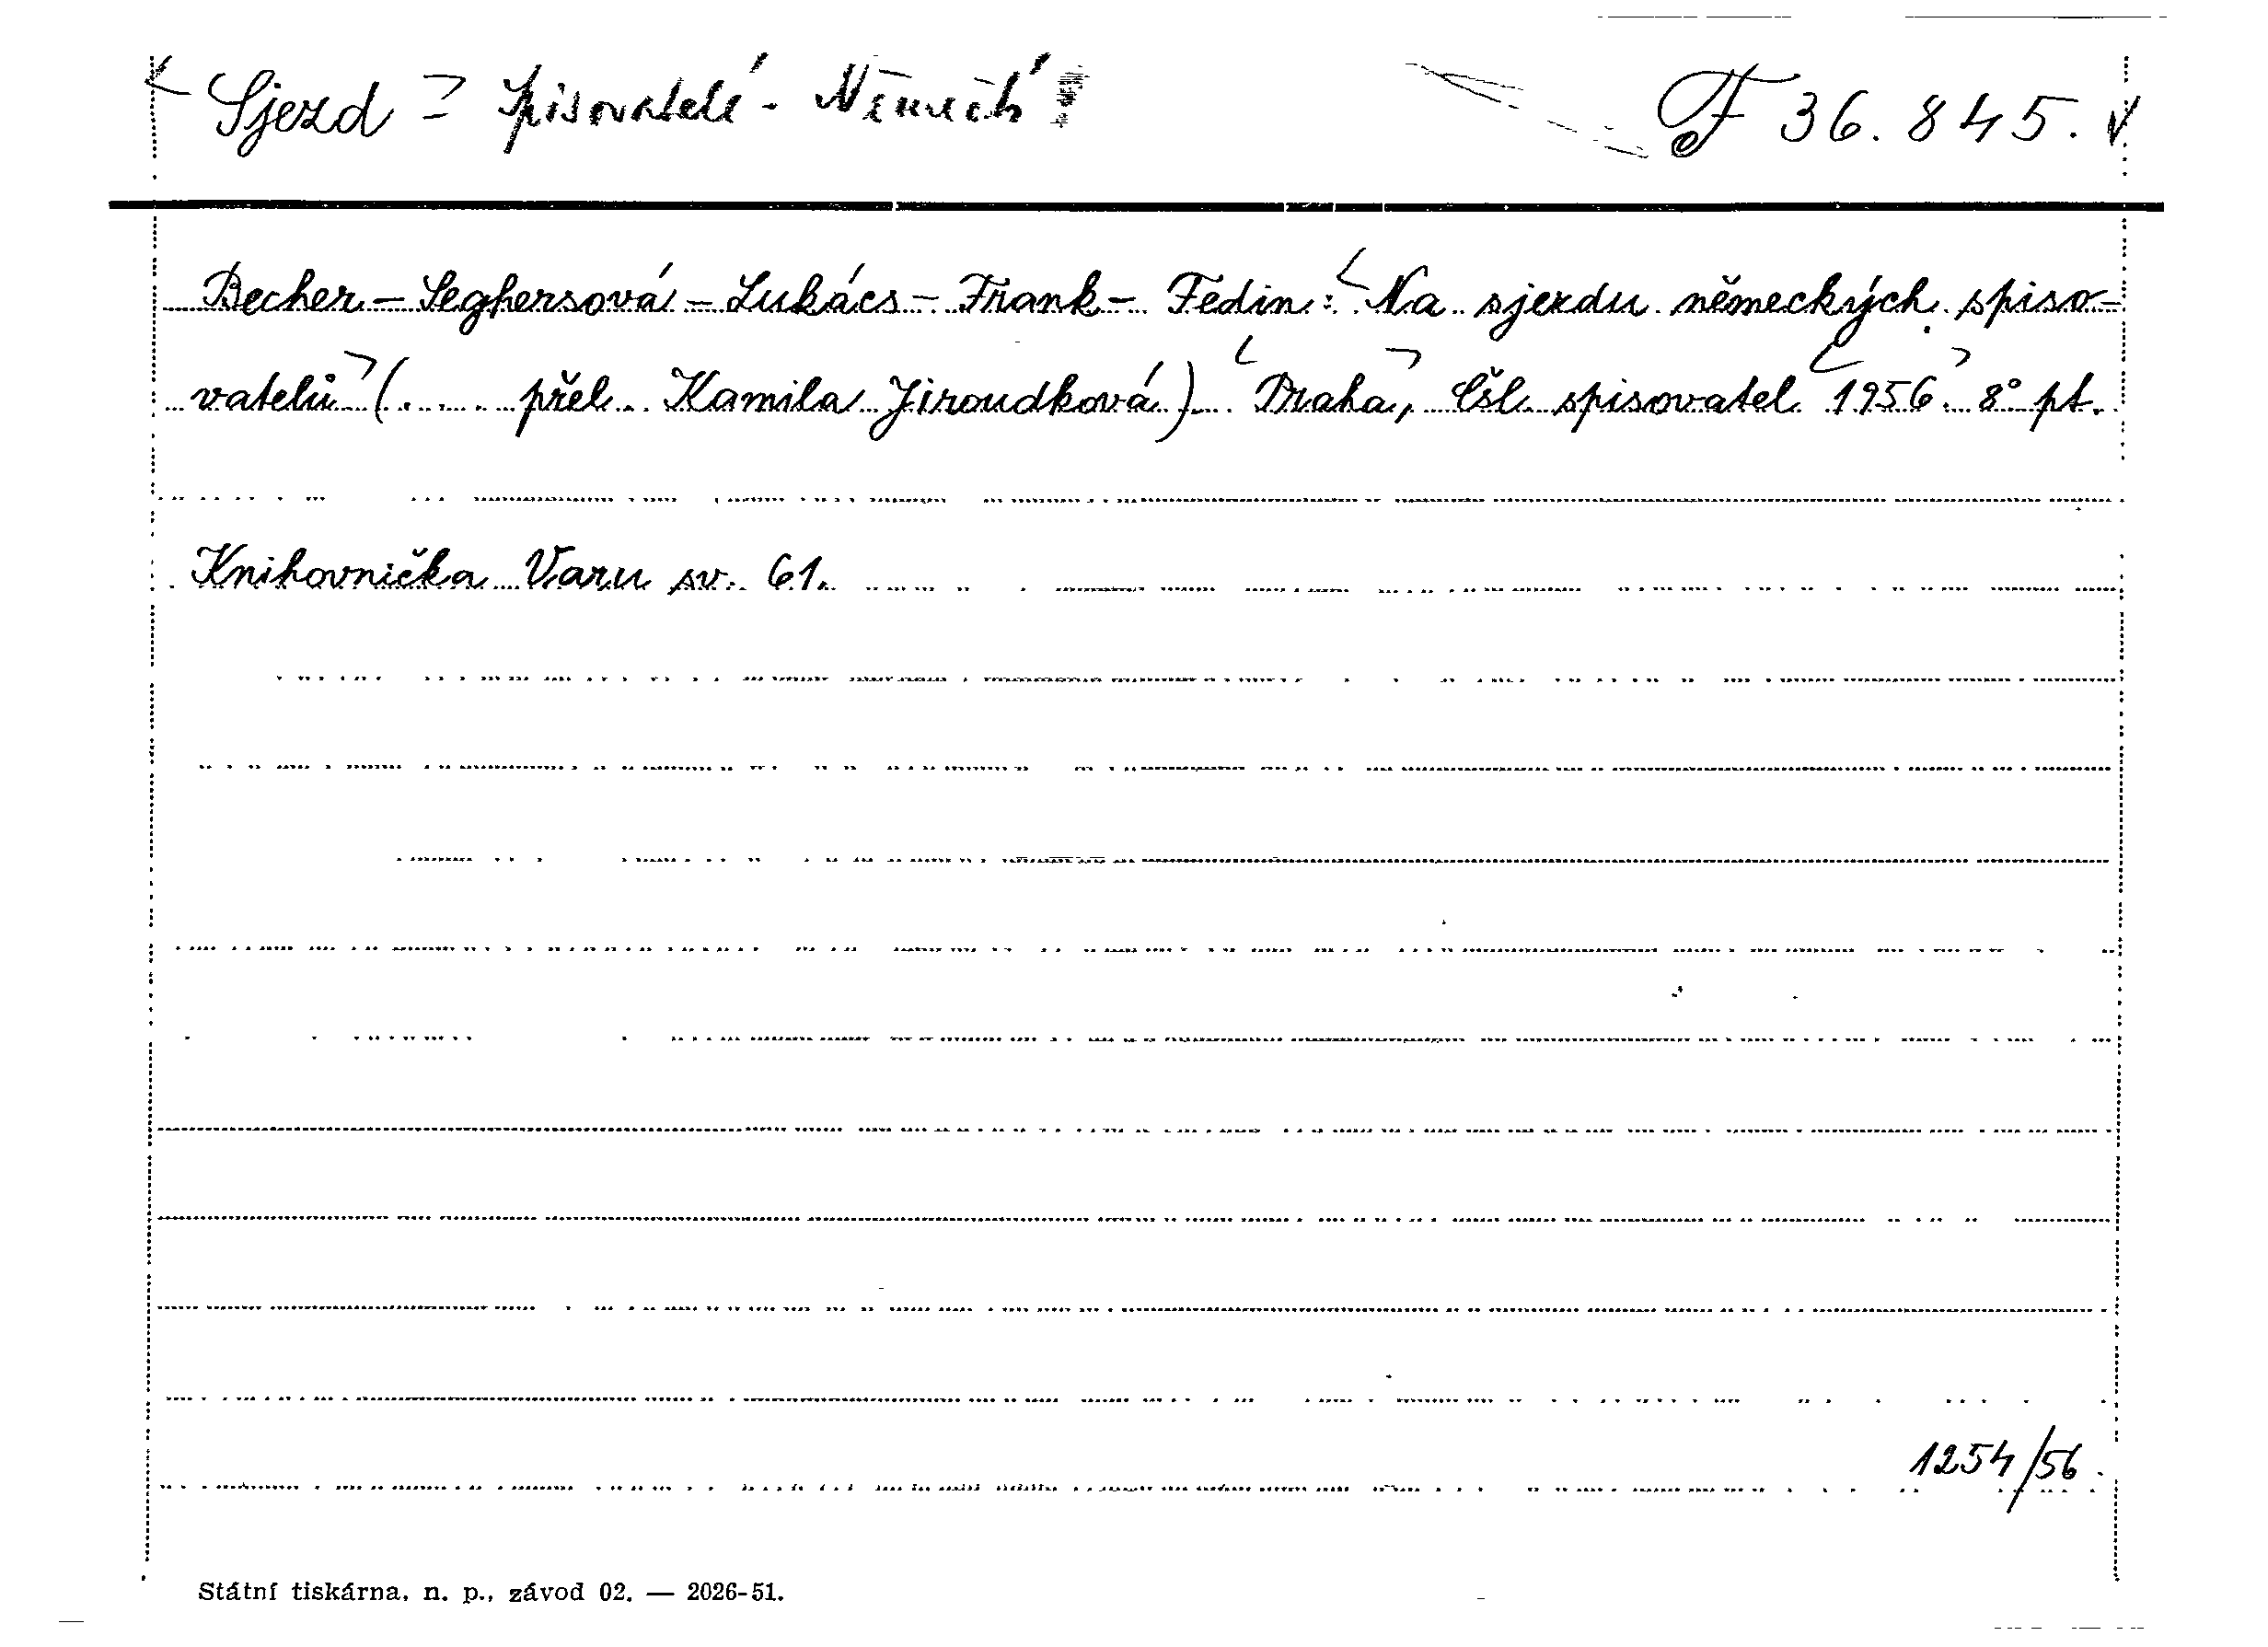 Sjezd - spisovatelé - Němečtí F 36.845.
Becher - Seghersová - Lukács - Frank - Fedin: Na sjezdu německých spiso-
vatelů (..... přel. Kamila Jiroudková) Praha, Čsl. spisovatel 1956. 8° pt.
Knihovnička Varu sv. 61.
1254/56.
Státní tiskárna, n. p., závod 02. — 2026-51.